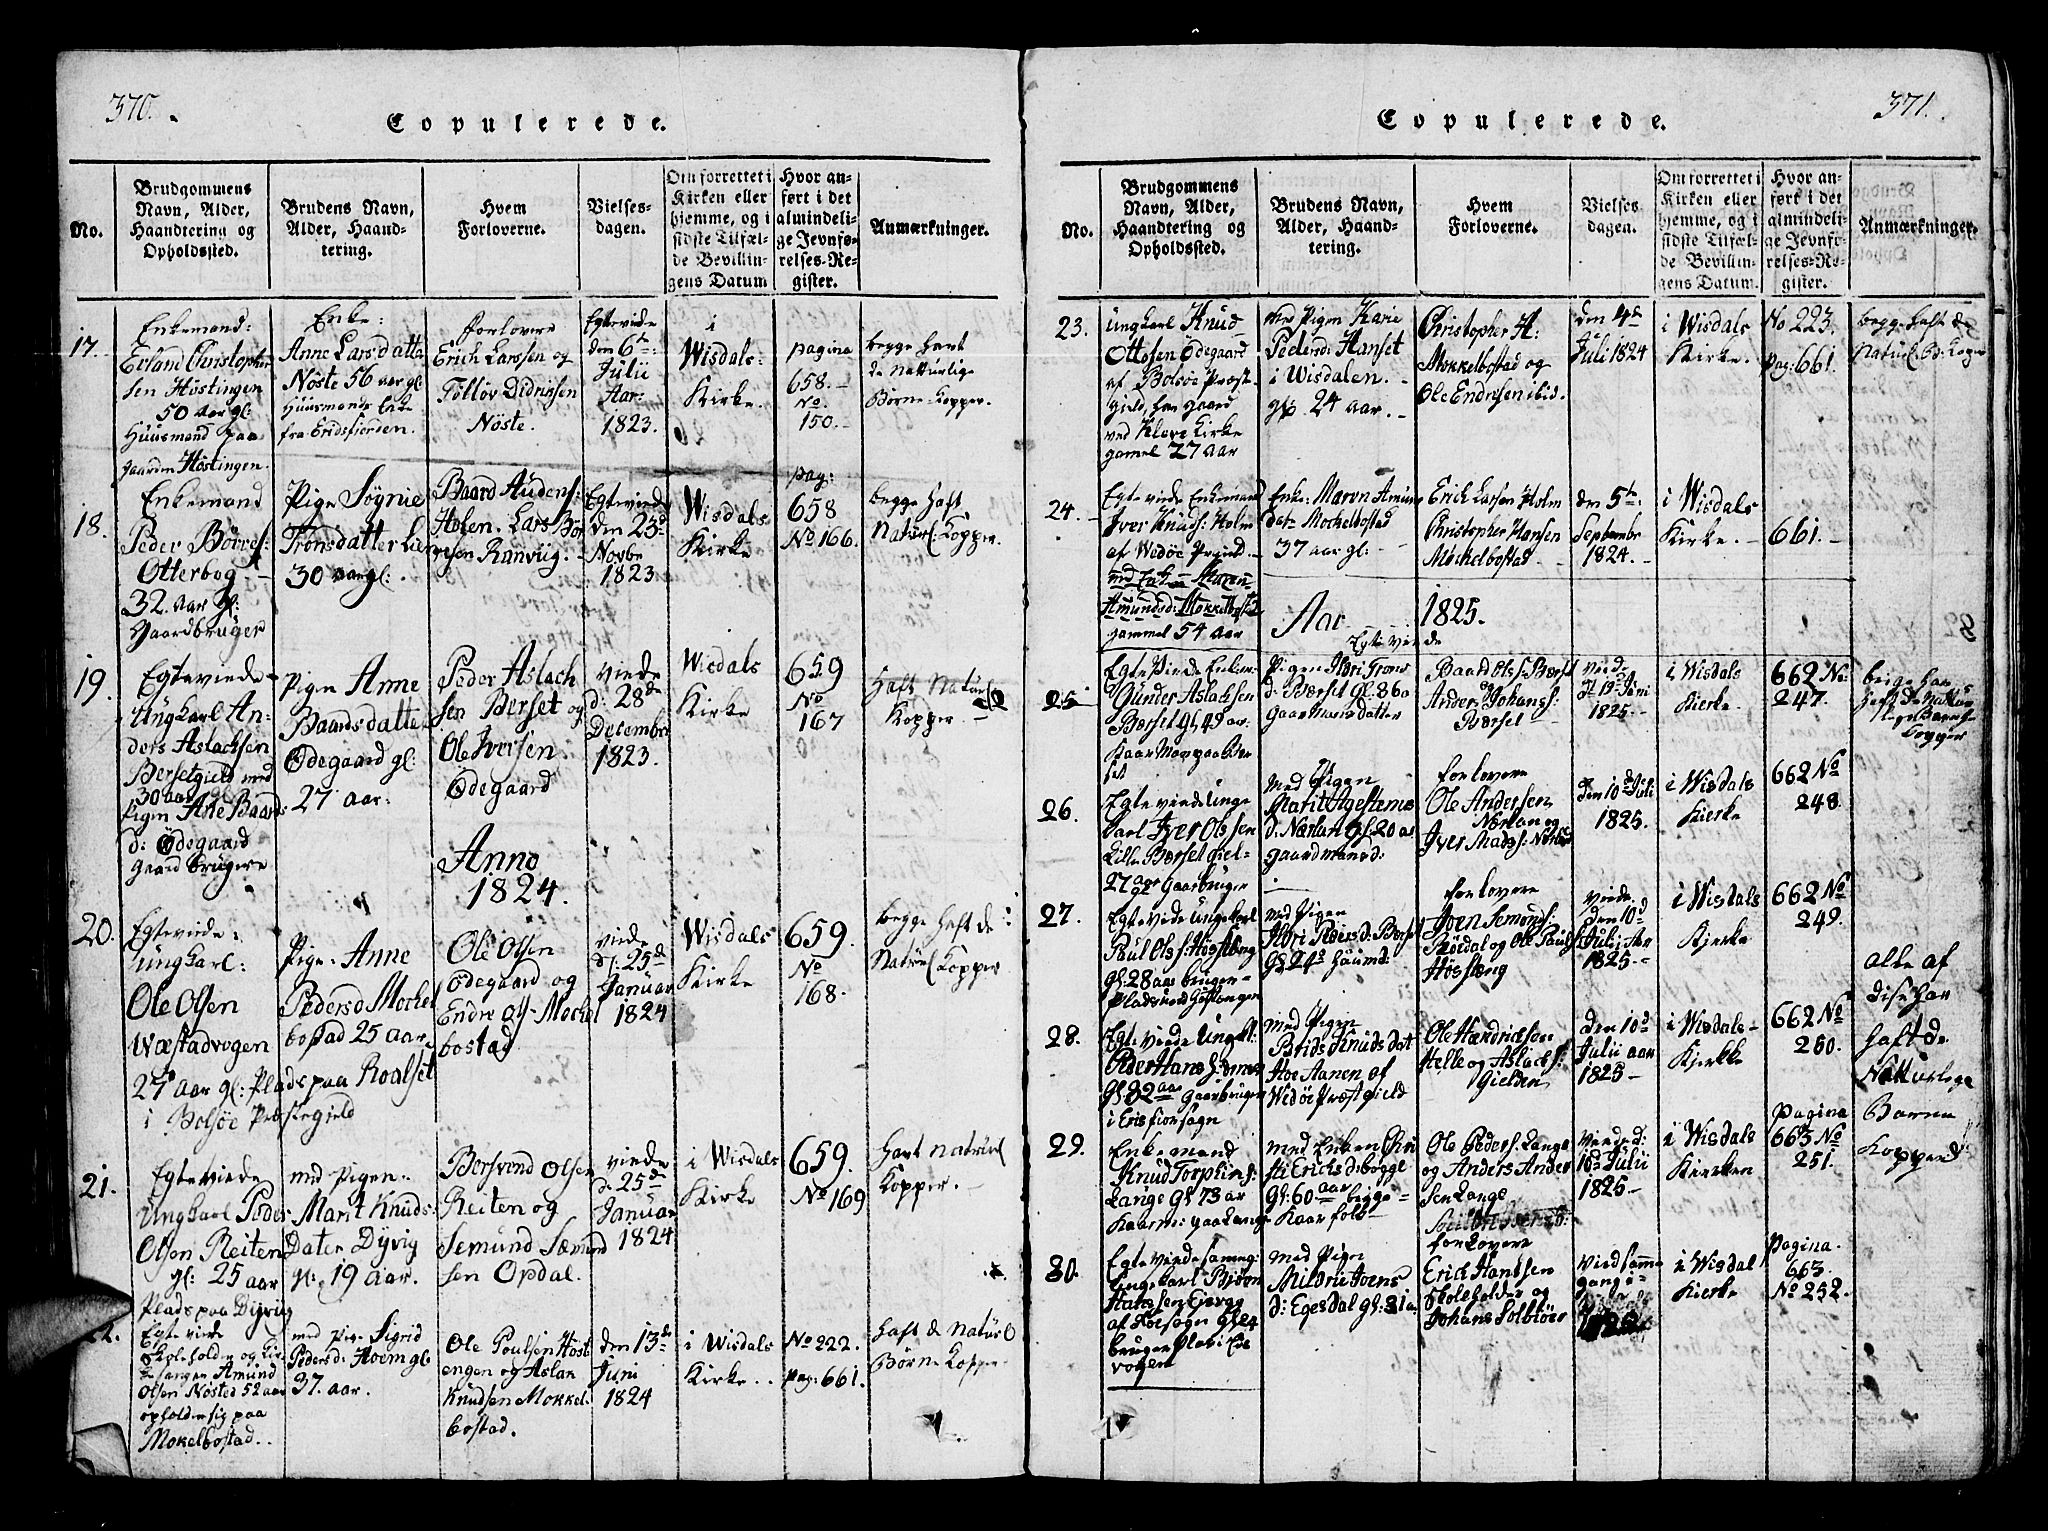 370.
Copulerede.
No.
Brudgommens
Navn, Alder,
Haandtering og
Opholdssted.
Brudens Navn,
Alder, Haand-
tering.
Hvem
Forloverne.
Vielses-
dagen.
Om forrettet i
Kirken eller
hjemme, og i
sidste Tilfæl-
de Bevillin-
gens Datum
Hvor an-
ført i det
almindeli-
ge Jevnfø-
relses-Re-
gister.
Anmærkninger.
17.
Enkemand:
Erland Christopher
sen Höstingen
50 aar gl:
Huusmand paa
gaarden Höstingen.
Enke:
Anne Larsdatter
Nöste 56 aar gl:
Huusmands Enke
fra Eridsfiorden.
Forlovere
Erich Larssen og
Tolløv Didriksen
Nöste.
Egteviede
den 6te
Julii
Aar:
1823.
i
Wisdals:
Kirke.
pagina
658.
No.
150.
begge havt
de naturlige
Börne-Kopper.
18.
Enkemand
Peder Börres:
Otterbog
32. aar gl:
Gaardbruger
Pige Sögnie
Tronsdatter Lien
30 aar gl:
Baard Audens:
Holen. Lars Bör
gesen Ranvüg.
Egteviede
den 23de
Novbr
1823
Wisdals
Kirke
pag:
658
No 166.
begge haft
Natürl Kopper.
19.
Egteviede
Ungkarl An-
ders Aslachsen
Berset gield med
30 aar
Pigen Ane Baards
d: Ödegaard
gaard brugere
Pigen Anne
Baardsdatter
Ödegaard gl:
27 aar.
Peder Aslach
sen Berset og
Ole Iversen
Ödegaard
viede
d: 28de
December
1823.
Wisdals
Kirke
659
No
167
haft Natürl
Kopper.
Anno
1824.
20.
Egteviede:
Ungkarl:
Ole Olsen
Wæstadvogen
27 aar gl: Plads paa Roalset
i Bolsöe Præstegield
Pige Anne
Pedersd Mochel
bostad 25 aar
Ole Olsen
Ödegaard og
Endre Ols. Mochel
bostad
viede
d: 25de
Januar
1824
Wisdals
Kirke
659.
No
168.
begge haft de
Natürl Kopper
21.
Egteviede
Ungkarl Peder
Olsen Reiten
gl: 25 aar
Plads paa Dyrvig
med Pigen
Marit Knuds
Dater Dÿvig
gl: 19 aar.
Bersvend Olsen
Reiten og
Semund Sæmund
sen Opdal.
viede
d. 25de
Januar
1824
i Wisdals
Kirke
659.
No 169
havt natürl
Kopper.
22.
Egteviede
Skoleholder og Kir
kesanger Amund
Olsen Nösted 52 aar
opholder sig paa
Mokelbostad.
med Pige Sigrid
Pedersd: Hoem gl:
37. aar.
Ole Poulsen Höst
engen og Aslak
Knudsen Mokkel
bostad.
den 13de
Juni
1824
i Wisdals
Kirke.
No 222.
pag: 661.
haft de natürl
Börne Kopper.
371.
Copulerede.
No.
Brudgommens
Navn, Alder,
Haandtering og
Opholdssted.
Brudens Navn,
Alder, Haand-
tering.
Hvem
Forloverne.
Vielses
dagen.
Om forrettet i
Kirken eller
hjemme, og i
sidste Tilfæl-
de Bevillin-
gens Datum.
Hvor an-
ført i det
almindeli-
ge Jevnfø-
relses-Re-
gister.
Anmærkninger.
23.
Ungkarl Knud
Ottosen Ödegaard
af Bolsöe Præst
gield, han gaard
ved Kleve Kirke
gamel 27 aar
Pigen Karie
Pedersd: Hanset
i Wisdalen.
gl. 24 aar.
Christopher H:
Mokkelbostad og
Ole Endresen ibid.
den 4de
Juli 1824
i Wisdals
Kirke.
No 223.
pag: 661.
begge haft de
Natürl B: Kopper
24.
Egteviede Enkemand
Iver Knuds: Holm
af Wedöe Prgield
med Enke Maren
Amundsd: Mokkelbost
gammel 54 aar
Enke: Maren Amun
datr Mochelbostad
37 aar gl:
Erich Larsen Holm
Christopher Hansen
Mochelbostad
den 5te
September
1824.
i Wisdals
Kirke.
661.
Aar 1825.
Egteviede
25
Egteviede Enkem
Gunder Aslachsen
Berset gl. 49 ar.
Kaar Man paa Ber
set
Pigen Sigri Trons
d: Berset gl: 860
Gaar Mans datter
Baar Ols: Berset
og
Ander Johans:
Berset
viede
d 19de Juni
1825.
i Wisdals
Kierke.
662 No
247.
begge har
haft de Nattur
lige Barne
kopper
26.
Egteviede Unge
karl Iver Olssen
Lille Berset giel
27 aar Gaarbruger
Med Pigen
Marit Agestens
d. Nærlan gl: 20 ar
gaardmansd:
forlovere
Ole Andersen
Nærlan og
Iver Mads: Nærlan
den 10de Juli
1825.
i Wisdals
Kierke
662 No
248.
27.
Egteviede Ungekarl
Poul Ols: Höysteng
gl: 28 aar bruger
Pladsmand Höstengen
med Pigen
Pedersd: Berset
gl 24
forlovere
Iven Semonds:
Röedal og Ole Pauls:
Höysteng
viede
den 10d
Juli ar
1825.
i Wisdals
Kjerke
662 No
249.
28.
Egteviede Ungkl:
Peder Hans:
gl: 32 aar Gaarbruger
i Erisfiorsogn
med Pigen
Brids Knuds dat
Hoe Aanen af
Wedöe Præstgield
Ole Hendrichsen
Helle og Aslach S:
Gielden
den 10d
Julii aar
1825
i Wisdals
Kjerkke
662 No
260.
alle af
dise har
haft de
Natturlige
Barne
Kopper
29.
Enkemand
Knud Torstens:
Lange gl 73 ar
Kaarm: paa Lange
med Enken Chri
sti Erichsd: begge
gl: 60 aar begge
Kaar folk
Ole Peders: Lange
og Anders Ander
sen Lange
viede d:
10d Julii
1825
i Wisdals
Kierken
pagina
663 No
251.
30.
Egteviede samme
Ungekarl Biörn
Hanssen
af
bruger
vogen
med Pigen
Mildrie Joens
d: Egesdal gl: 31 a
forlovere
Erick Hanssen
Skoleholder og
Johans Solbiör
vied samme
gang
i Wisdal
Kierke
Pagina
663
No 252.